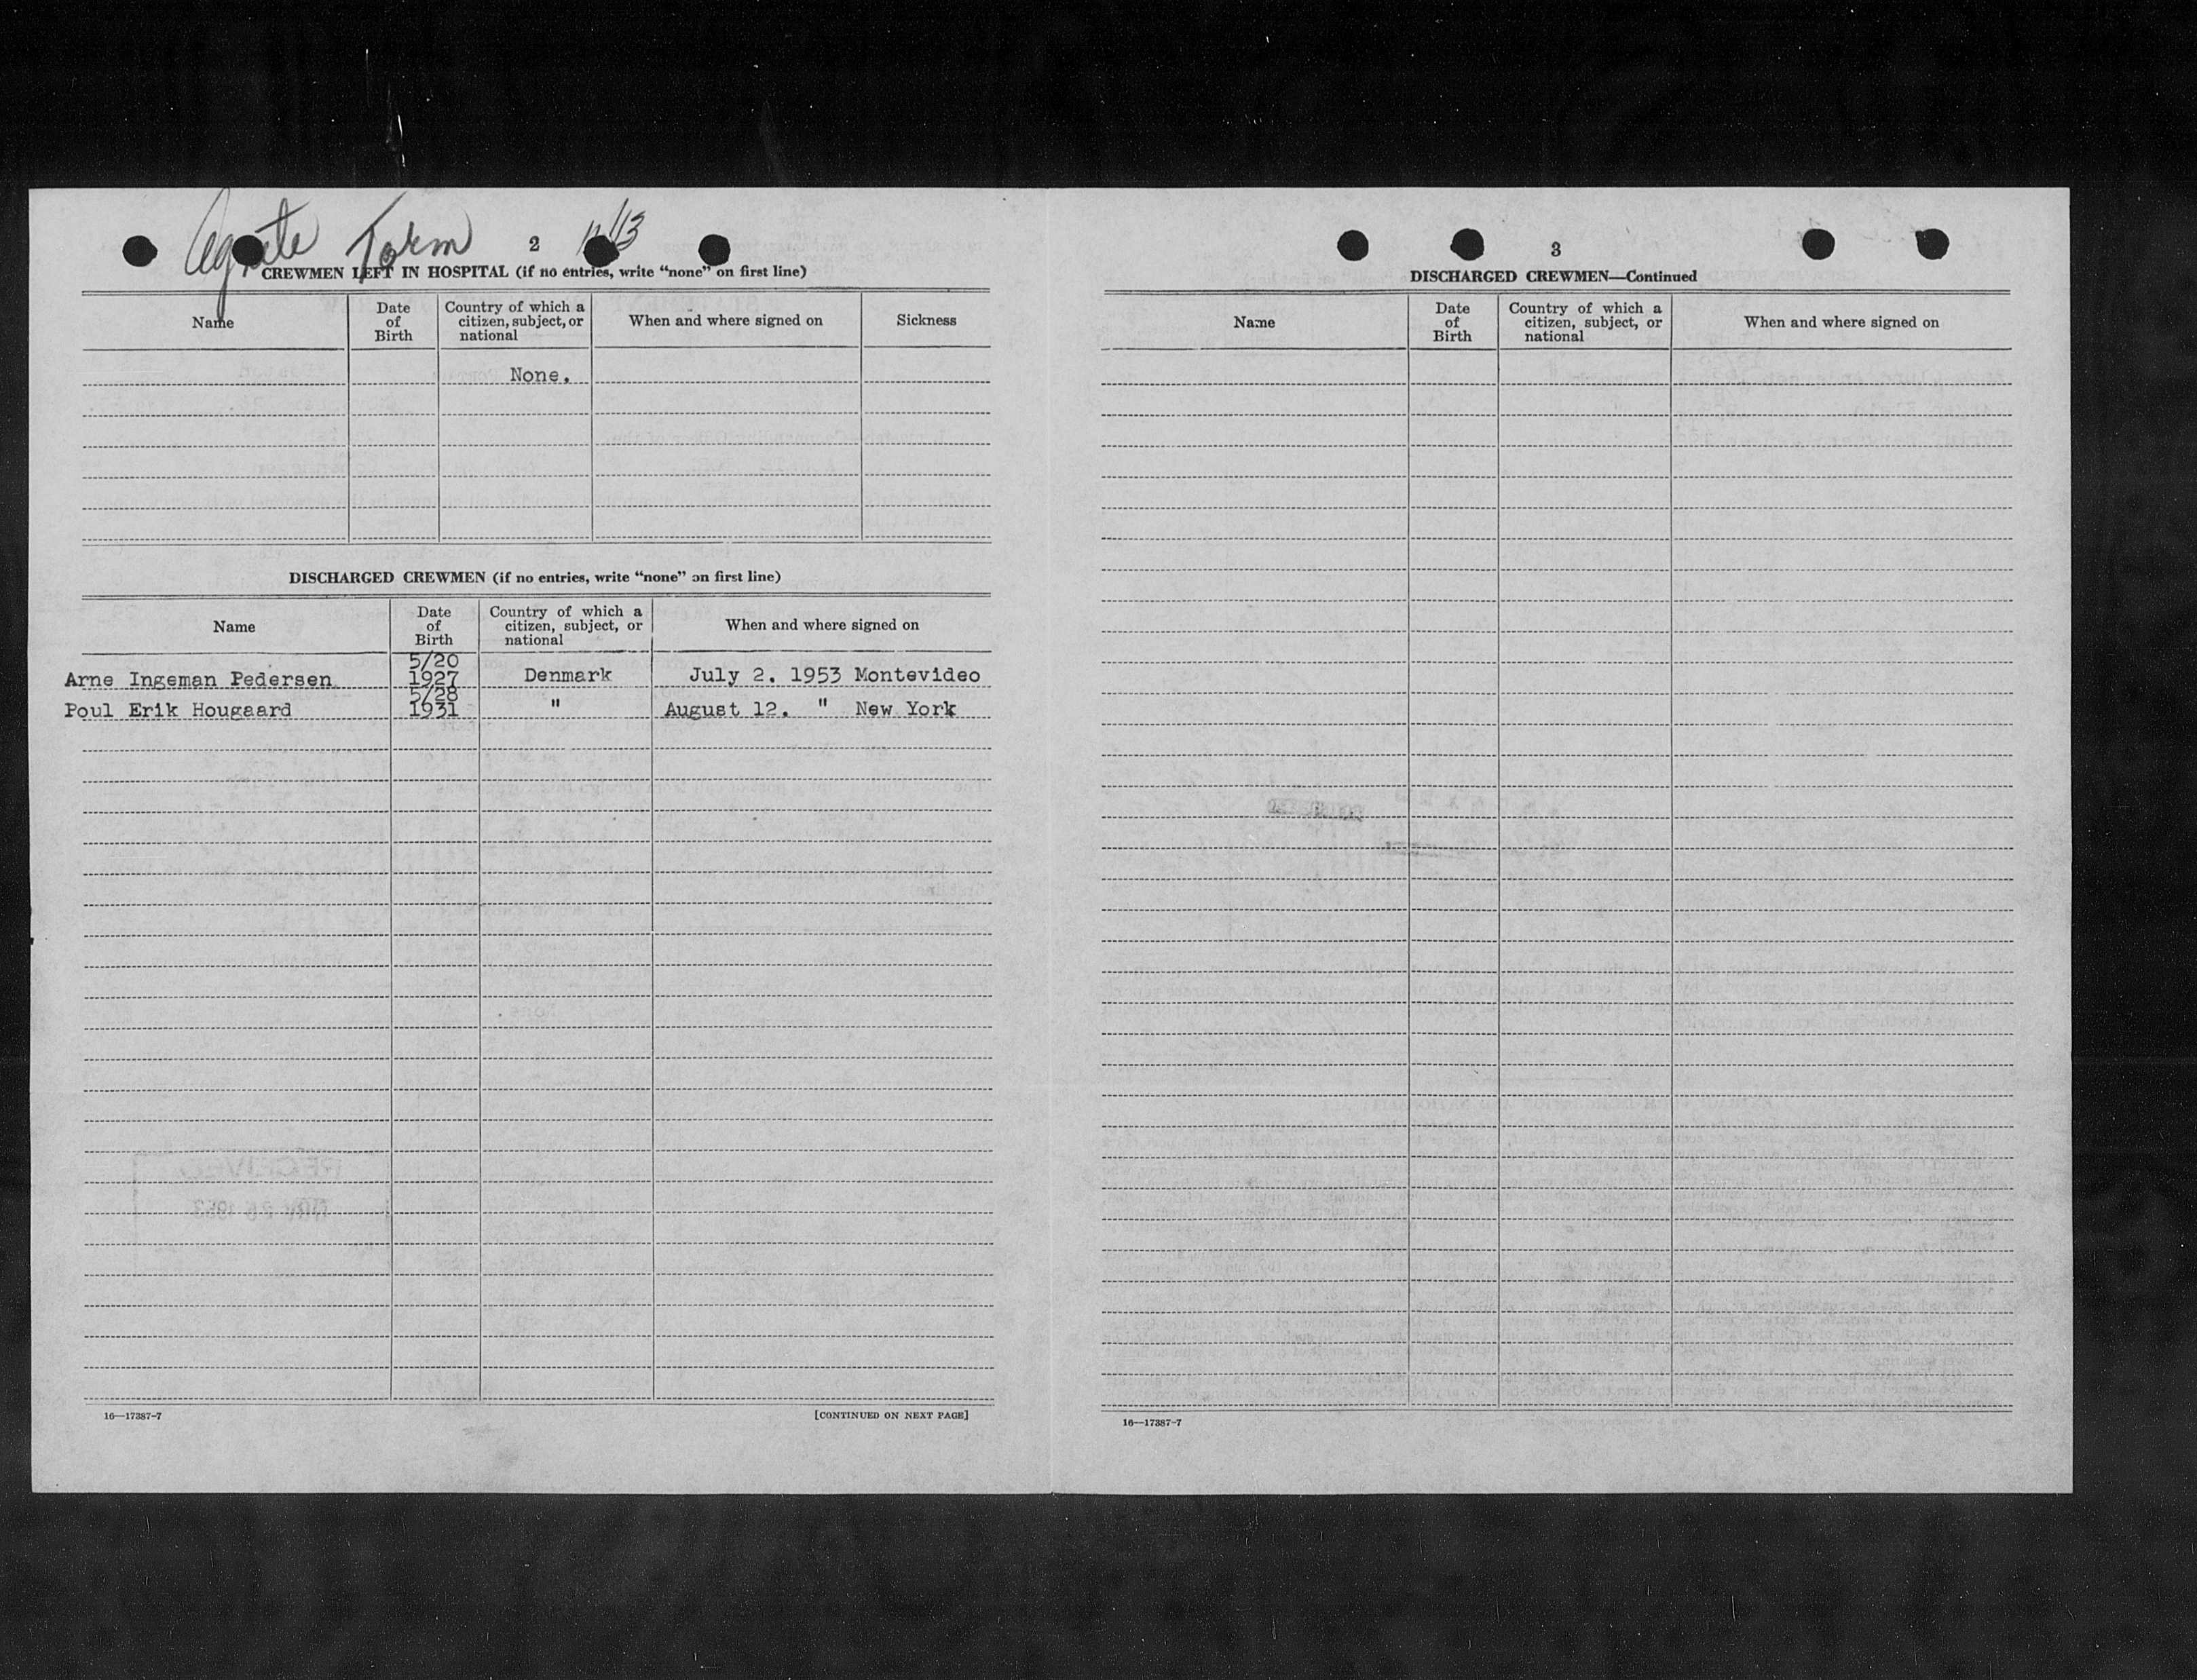 Agnete Torm 2 11/13
CREWMEN LEFT IN HOSPITAL (if no entries, write “none” on first line)
Name
Date of Birth
Country of which a citizen, subject, or national
When and where signed on
Sickness
None.
DISCHARGED CREWMEN (if no entries, write “none” on first line)
Name
Date of Birth
Country of which a citizen, subject, or national
When and where signed on
Arne Ingeman Pedersen 5/20 1927 Denmark July 2. 1953 Montevideo
Poul Erik Hougaard 5/28 1931 " August 12. " New York
16—17387-7
[CONTINUED ON NEXT PAGE]
3
DISCHARGED CREWMEN—Continued
Name
Date of Birth
Country of which a citizen, subject, or national
When and where signed on
16—17387-7